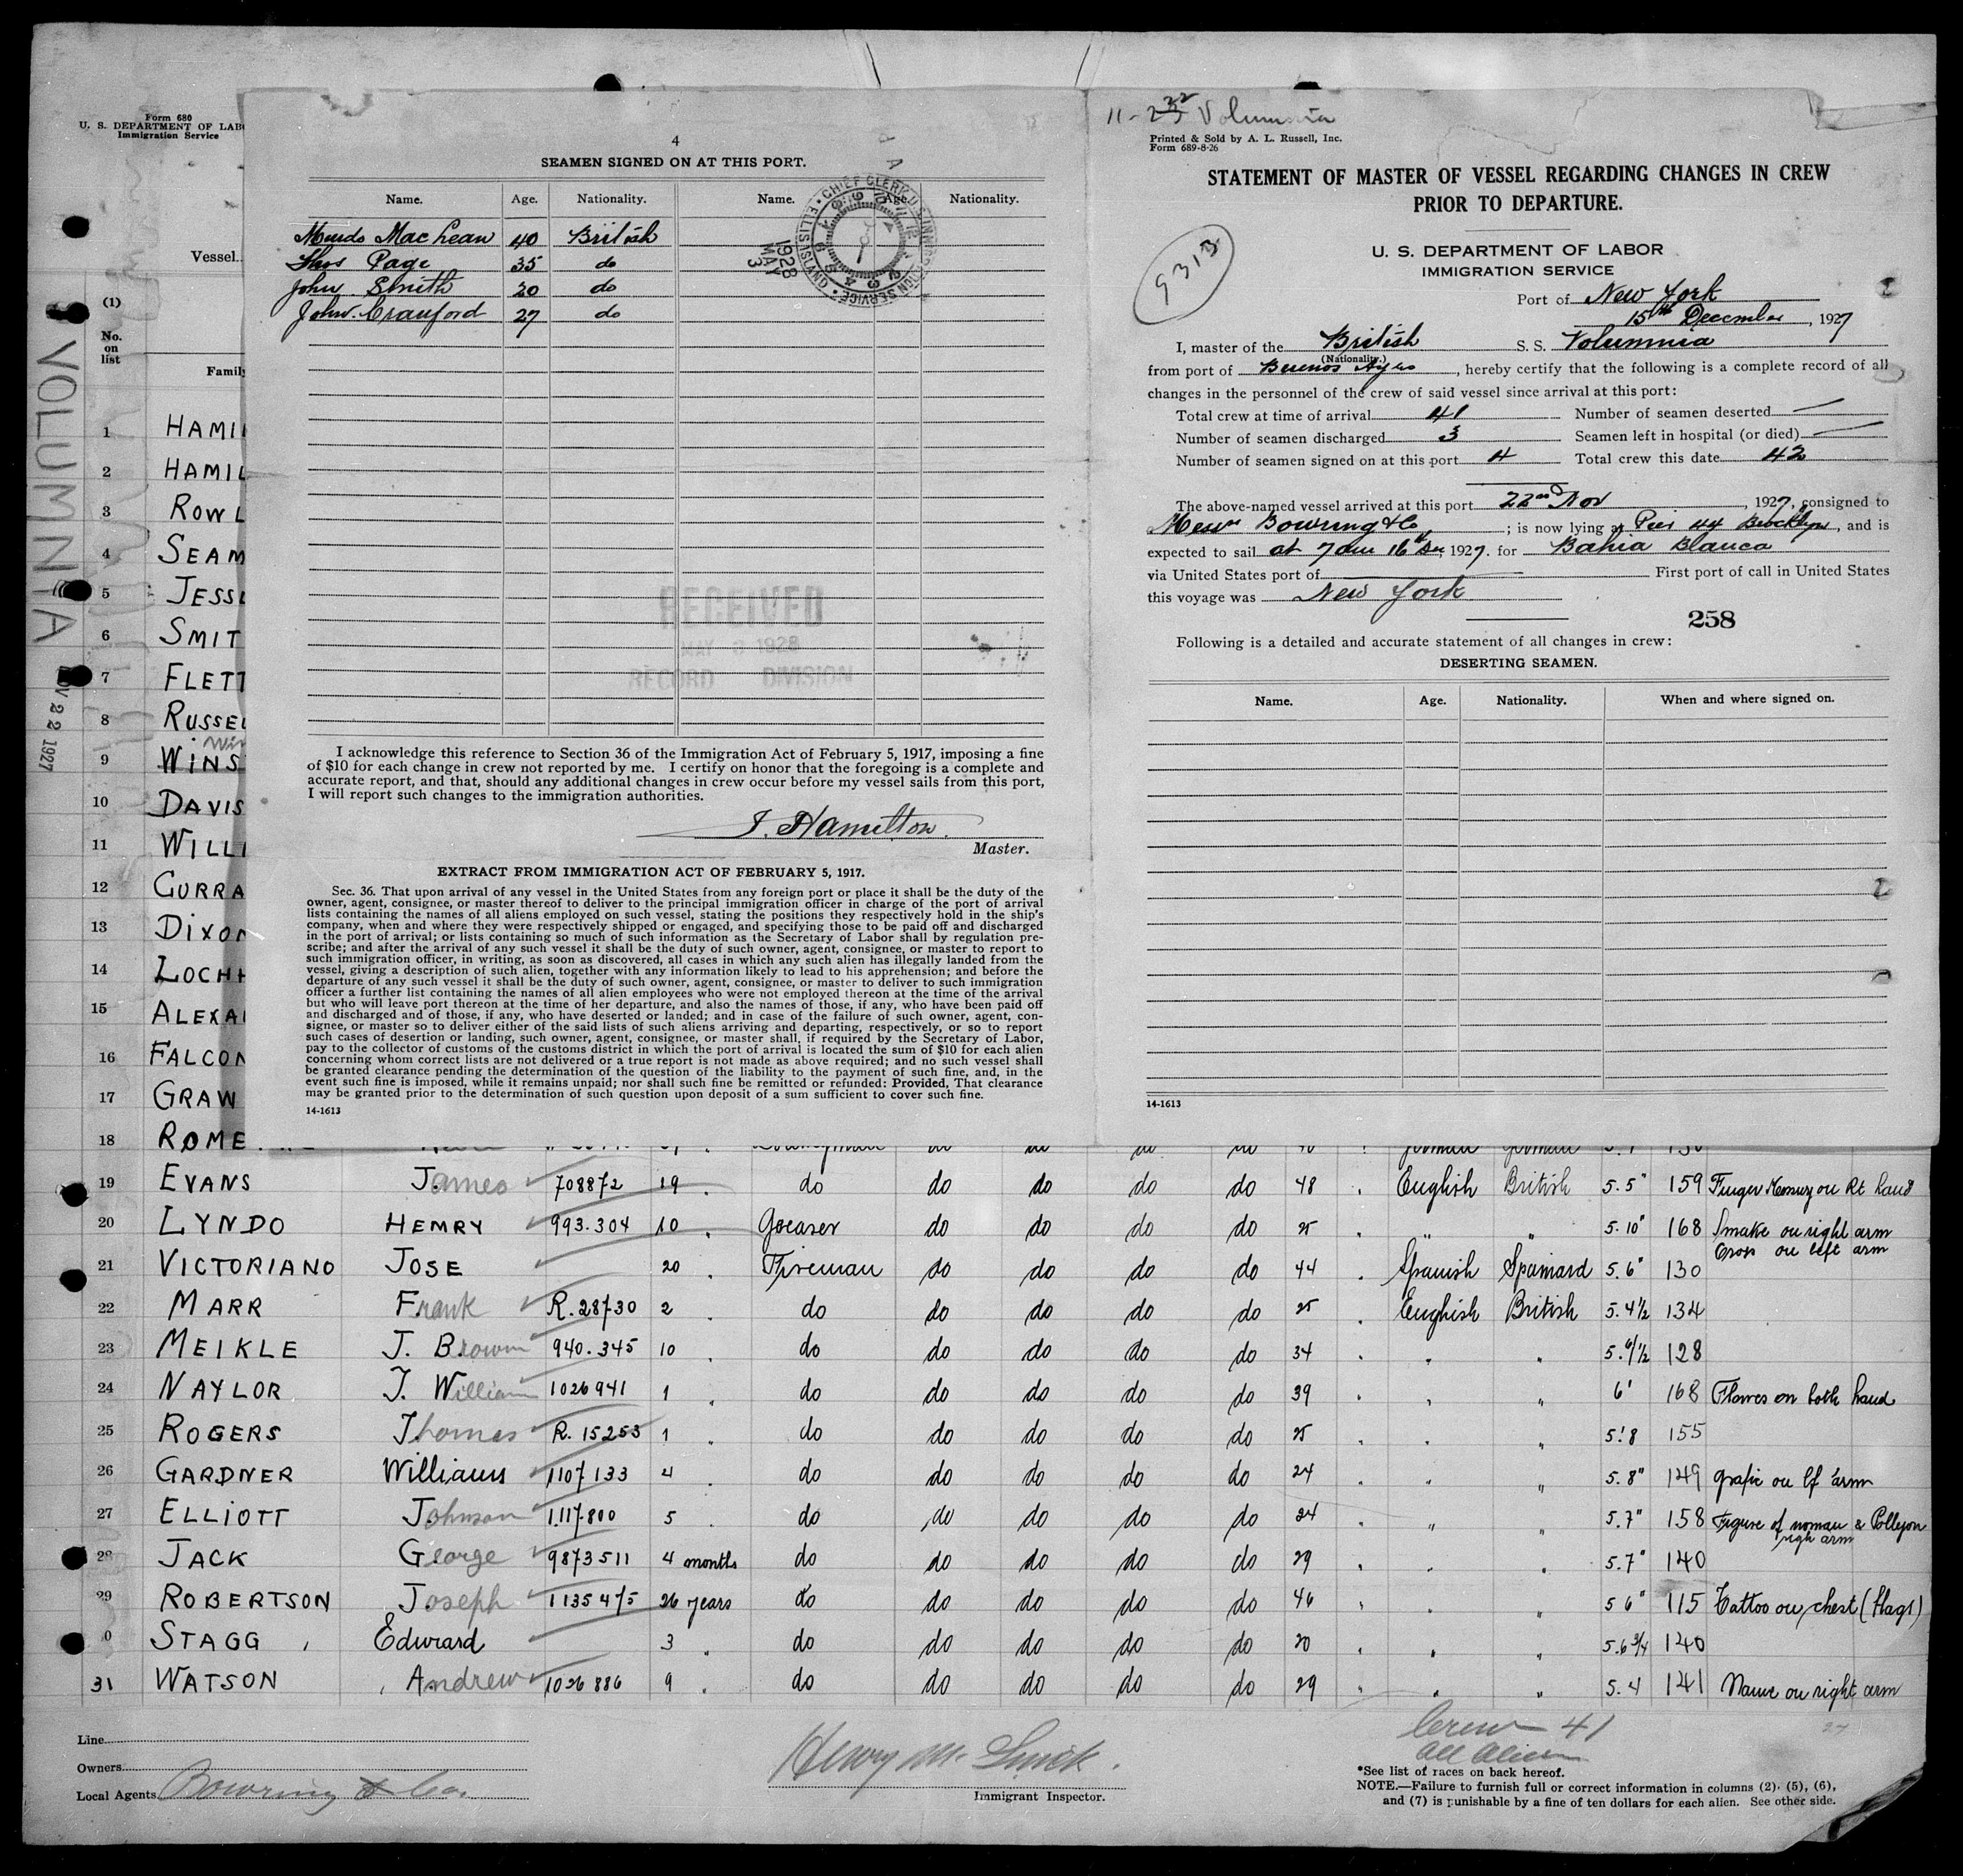 Form 680
U. S. DEPARTMENT OF LAB
Immigration Service
Vessel
(1)
No.
on
list
Famil
VOLUMNIA
NOV 22 1927
1 HAMI
2 HAMIL
3 ROWL
4 SEAM
5 JESS
6 SMIT
7 FLETT
8 RUSSEL
9 WINS
10 DAVIS
11 WILLI
12 CURRA
13 DIXON
14 LOCHH
15 ALEXA
16 FALCON
17 GRAW
18 ROME
4
SEAMEN SIGNED ON AT THIS PORT.
Name. Age. Nationality. Name. Age. Nationality.
Murdo MacLean 40 British
Thos Page 35 do
John Smith 20 do
John Cranford 27 do
CHIEF CLERK U.S. IMMIGRATION SERVICE ELLIS ISLAND
1928 MAY 3
RECEIVED
MAY 3 1928
RECORD DIVISION
I acknowledge this reference to Section 36 of the Immigration Act of February 5, 1917, imposing a fine
of $10 for each change in crew not reported by me. I certify on honor that the foregoing is a complete and
accurate report, and that, should any additional changes in crew occur before my vessel sails from this port,
I will report such changes to the immigration authorities.
J. Hamilton
Master.
EXTRACT FROM IMMIGRATION ACT OF FEBRUARY 5, 1917.
Sec. 36. That upon arrival of any vessel in the United States from any foreign port or place it shall be the duty of the
owner, agent, consignee, or master thereof to deliver to the principal immigration officer in charge of the port of arrival
lists containing the names of all aliens employed on such vessel, stating the positions they respectively hold in the ship's
company, when and where they were respectively shipped or engaged, and specifying those to be paid off and discharged
in the port of arrival; or lists containing so much of such information as the Secretary of Labor shall by regulation pre-
scribe; and after the arrival of any such vessel it shall be the duty of such owner, agent, consignee, or master to report to
such immigration officer, in writing, as soon as discovered, all cases in which any such alien has illegally landed from the
vessel, giving a description of such alien, together with any information likely to lead to his apprehension; and before the
departure of any such vessel it shall be the duty of such owner, agent, consignee, or master to deliver to such immigration
officer a further list containing the names of all alien employees who were not employed thereon at the time of the arrival
but who will leave port thereon at the time of her departure, and also the names of those, if any, who have been paid off
and discharged and of those, if any, who have deserted or landed; and in case of the failure of such owner, agent, con-
signee, or master so to deliver either of the said lists of such aliens arriving and departing, respectively, or so to report
such cases of desertion or landing, such owner, agent, consignee, or master shall, if required by the Secretary of Labor,
pay to the collector of customs of the customs district in which the port of arrival is located the sum of $10 for each alien
concerning whom correct lists are not delivered or a true report is not made as above required; and no such vessel shall
be granted clearance pending the determination of the question of the liability to the payment of such fine, and, in the
event such fine is imposed, while it remains unpaid; nor shall such fine be remitted or refunded: Provided, That clearance
may be granted prior to the determination of such question upon deposit of a sum sufficient to cover such fine.
14-1613
Volumnia
Printed & Sold by A. L. Russell, Inc.
Form 689-8-26
STATEMENT OF MASTER OF VESSEL REGARDING CHANGES IN CREW
PRIOR TO DEPARTURE.
9313
U. S. DEPARTMENT OF LABOR
IMMIGRATION SERVICE
Port of New York
15th December, 1927
I, master of the British S. S. Volumnia
(Nationality.)
from port of Buenos Ayres, hereby certify that the following is a complete record of all
changes in the personnel of the crew of said vessel since arrival at this port:
Total crew at time of arrival 41 Number of seamen deserted —
Number of seamen discharged 3 Seamen left in hospital (or died) —
Number of seamen signed on at this port 4 Total crew this date 42
The above-named vessel arrived at this port 22nd Nov, 1927, consigned to
Messrs Bowring & Co; is now lying at Pier 44 Brooklyn, and is
expected to sail at 7am 16th Dec, 1927. for Bahia Blanca
via United States port of First port of call in United States
this voyage was New York
258
Following is a detailed and accurate statement of all changes in crew:
DESERTING SEAMEN.
Name. Age. Nationality. When and where signed on.
14-1613
19 EVANS James 708872 19 do do do do do 48 English British 5.5" 159
20 LYNDO HENRY 993.304 10 Greaser do do do do 25 " " 5.10" 168 Snake on right arm
Cross on left arm
21 VICTORIANO JOSE 20 Fireman do do do do 44 Spanish Spaniard 5.6" 130
22 MARR Frank R.28730 2 do do do do do 25 English British 5.4½ 134
23 MEIKLE J. Brown 940.345 10 do do do do do 34 " " 5.6½ 128
24 NAYLOR J. William 1026941 1 do do do do do 39 " " 6' 168 on both hand
25 ROGERS Thomas R. 15253 1 do do do do do 25 " " 5'.8 155
26 GARDNER William 1107133 4 do do do do do 24 " " 5.8" 149 on lf arm
27 ELLIOTT Johnson 1.117.800 5 do do do do do 24 " " 5.7" 158 Figure of woman &
righ arm
28 JACK George 9873511 4 months do do do do do 29 " " 5.7" 140
29 ROBERTSON Joseph 1135475 26 years do do do do do 46 " " 5 6" 115 Tattoo on chest (Flags)
30 STAGG Edward 3 do do do do do 20 " " 5.6¾ 140
31 WATSON Andrew 1026886 9 do do do do do 29 " " 5.4 141 Name on right arm
Line
Owners
Local Agents Bowring & Co.
Immigrant Inspector.
Crew 41
all alien
*See list of races on back hereof.
NOTE.—Failure to furnish full or correct information in columns (2), (5), (6),
and (7) is punishable by a fine of ten dollars for each alien. See other side.